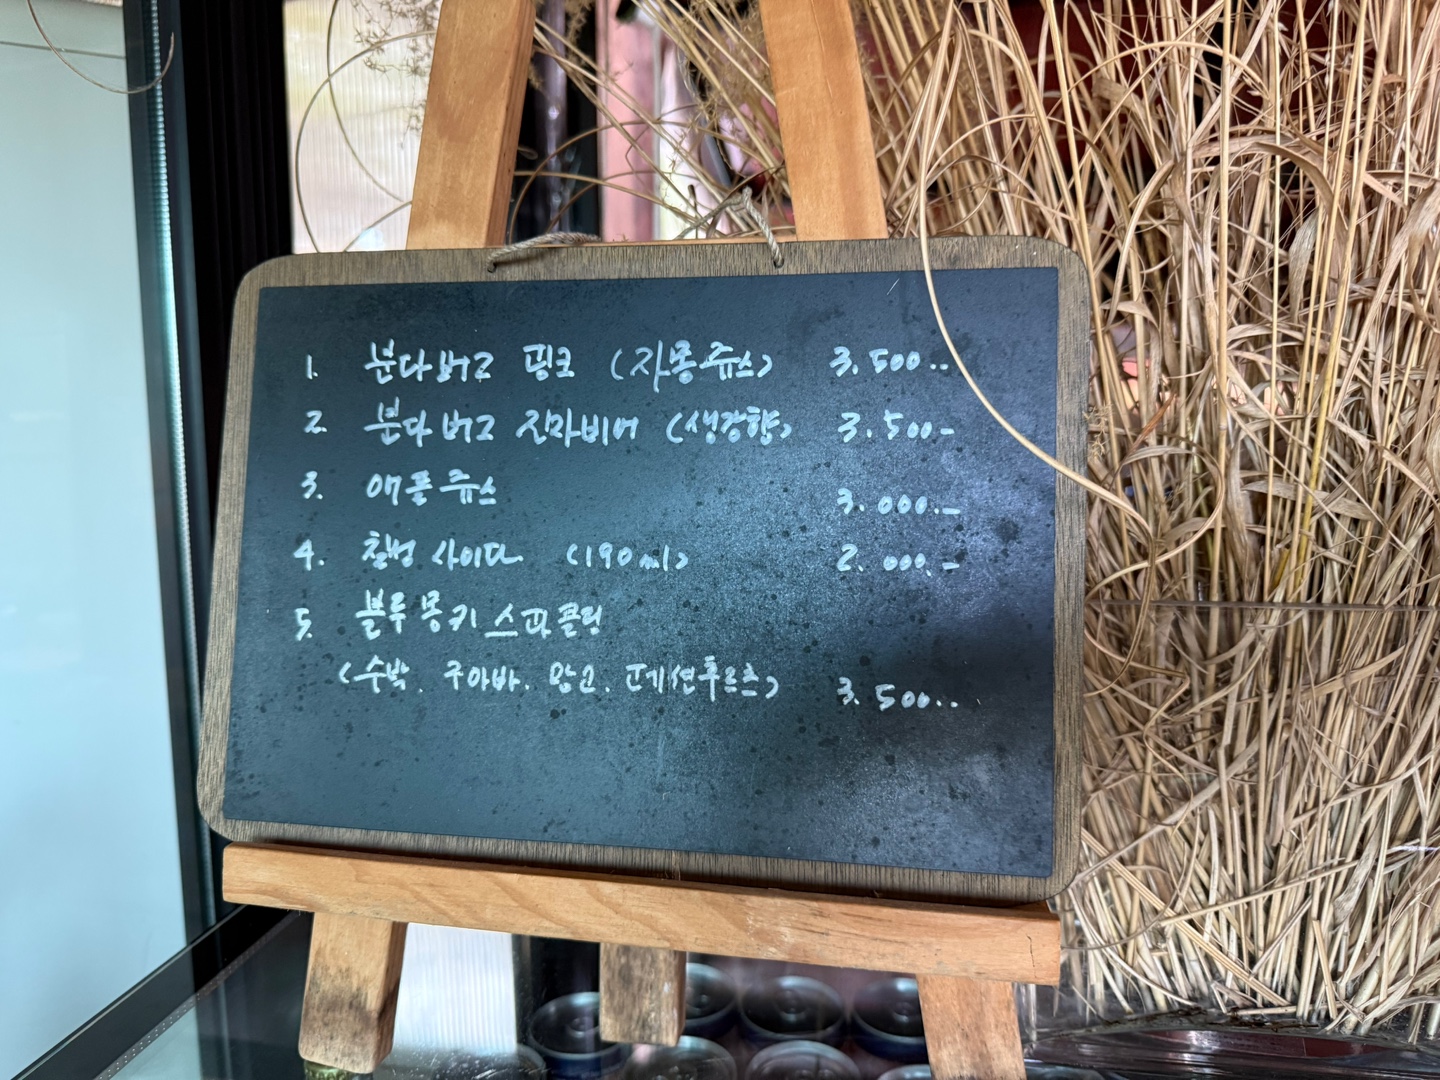 1. 분다버그 핑크 (자몽쥬스) 3.500..
2. 분다버그 진자비어 (생강향) 3.500-
3. 애플쥬스 3.000.-
4. 칠성 사이다 (190ml) 2.000.-
5. 블루몽키 스파클링
(수박. 구아바. 망고. 패션후르츠) 3.500..